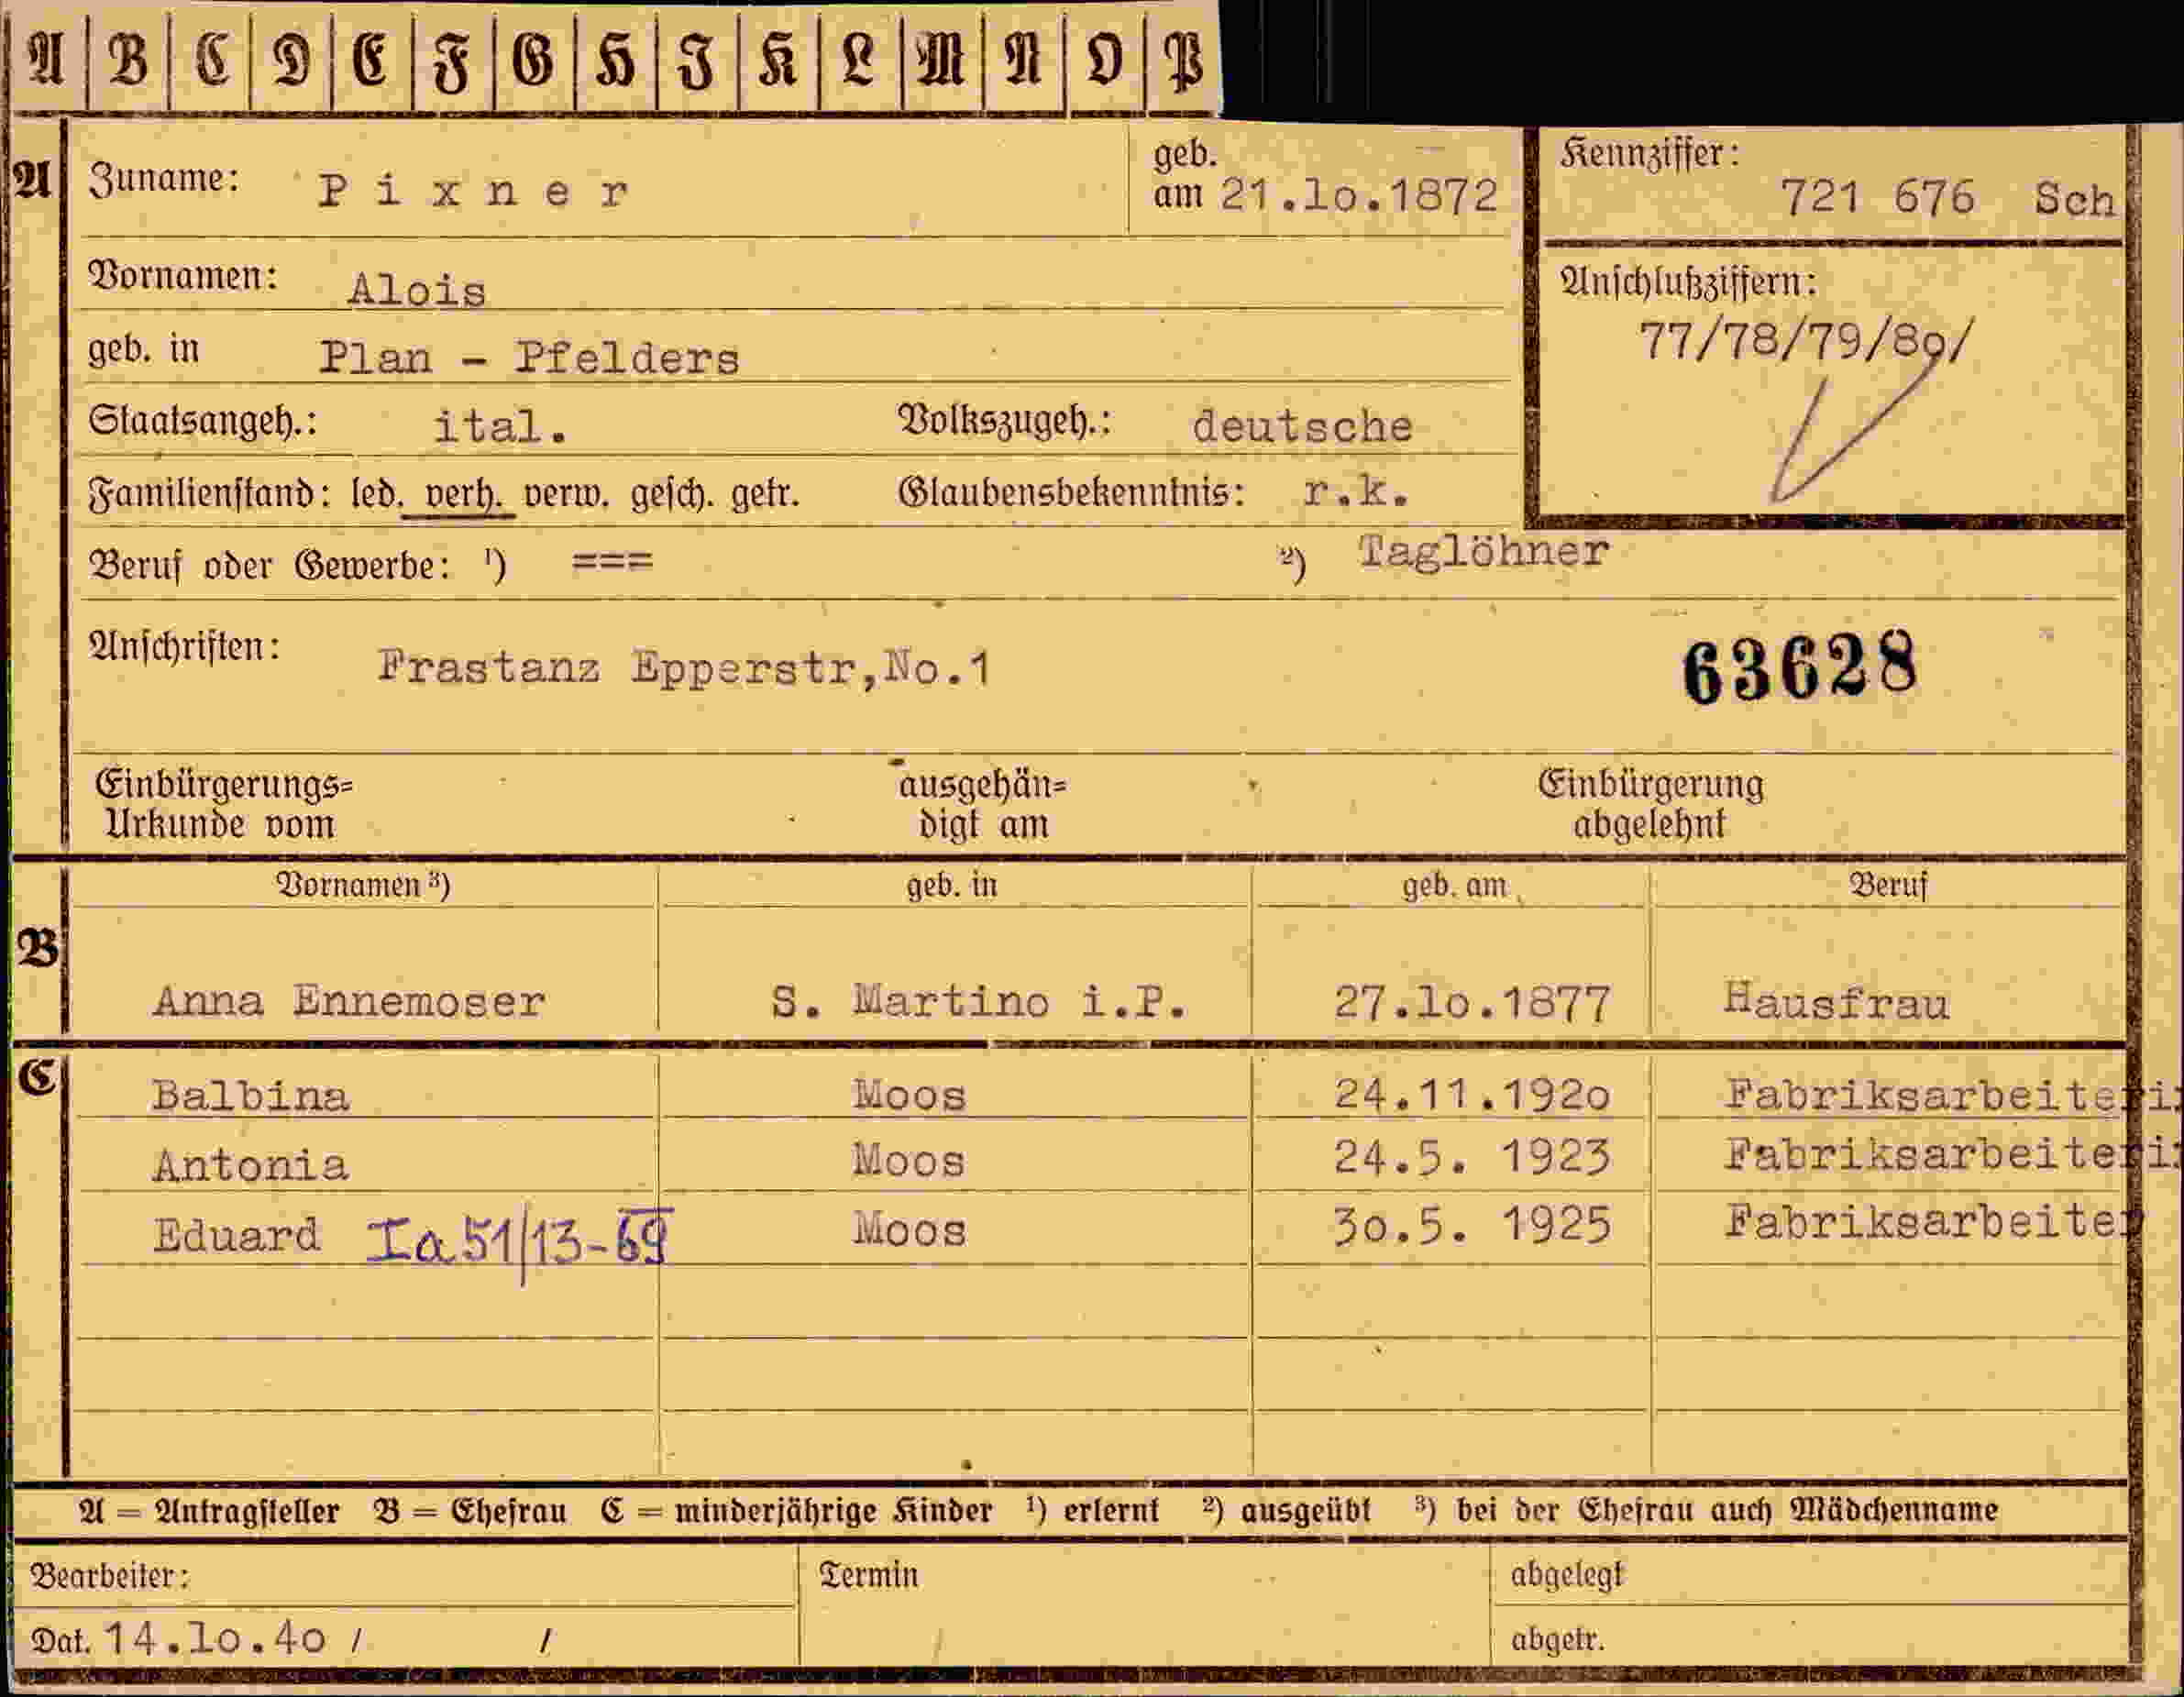 A B C D E F G H I K L M N O P
A Zuname: Pixner geb. am 21.lo.1872 Kennziffer: 721 676 Sch
Vornamen: Alois Anschlußziffern:
geb. in Plan - Pfelders 77/78/79/80/
Staatsangeh.: ital. Volkszugeh.: deutsche
Familienstand: led. verh. verw. gesch. getr. Glaubensbekenntnis: r.k.
Beruf oder Gewerbe: ¹) === ²) Taglöhner
Anschriften: Frastanz Epperstr,No.1 63628
Einbürgerungs= ausgehän= Einbürgerung
Urkunde vom digt am abgelehnt
Vornamen ³) geb. in geb. am Beruf
B Anna Ennemoser S. Martino i.P. 27.lo.1877 Hausfrau
C Balbina Moos 24.11.192o Fabriksarbeiteri
Antonia Moos 24.5. 1923 Fabriksarbeiteri
Eduard Ia 51/13-69 Moos 3o.5. 1925 Fabriksarbeiter
A = Antragsteller B = Ehefrau C = minderjährige Kinder ¹) erlernt ²) ausgeübt ³) bei der Ehefrau auch Mädchenname
Bearbeiter: Termin abgelegt
Dat. 14.lo.4o / / abgetr.